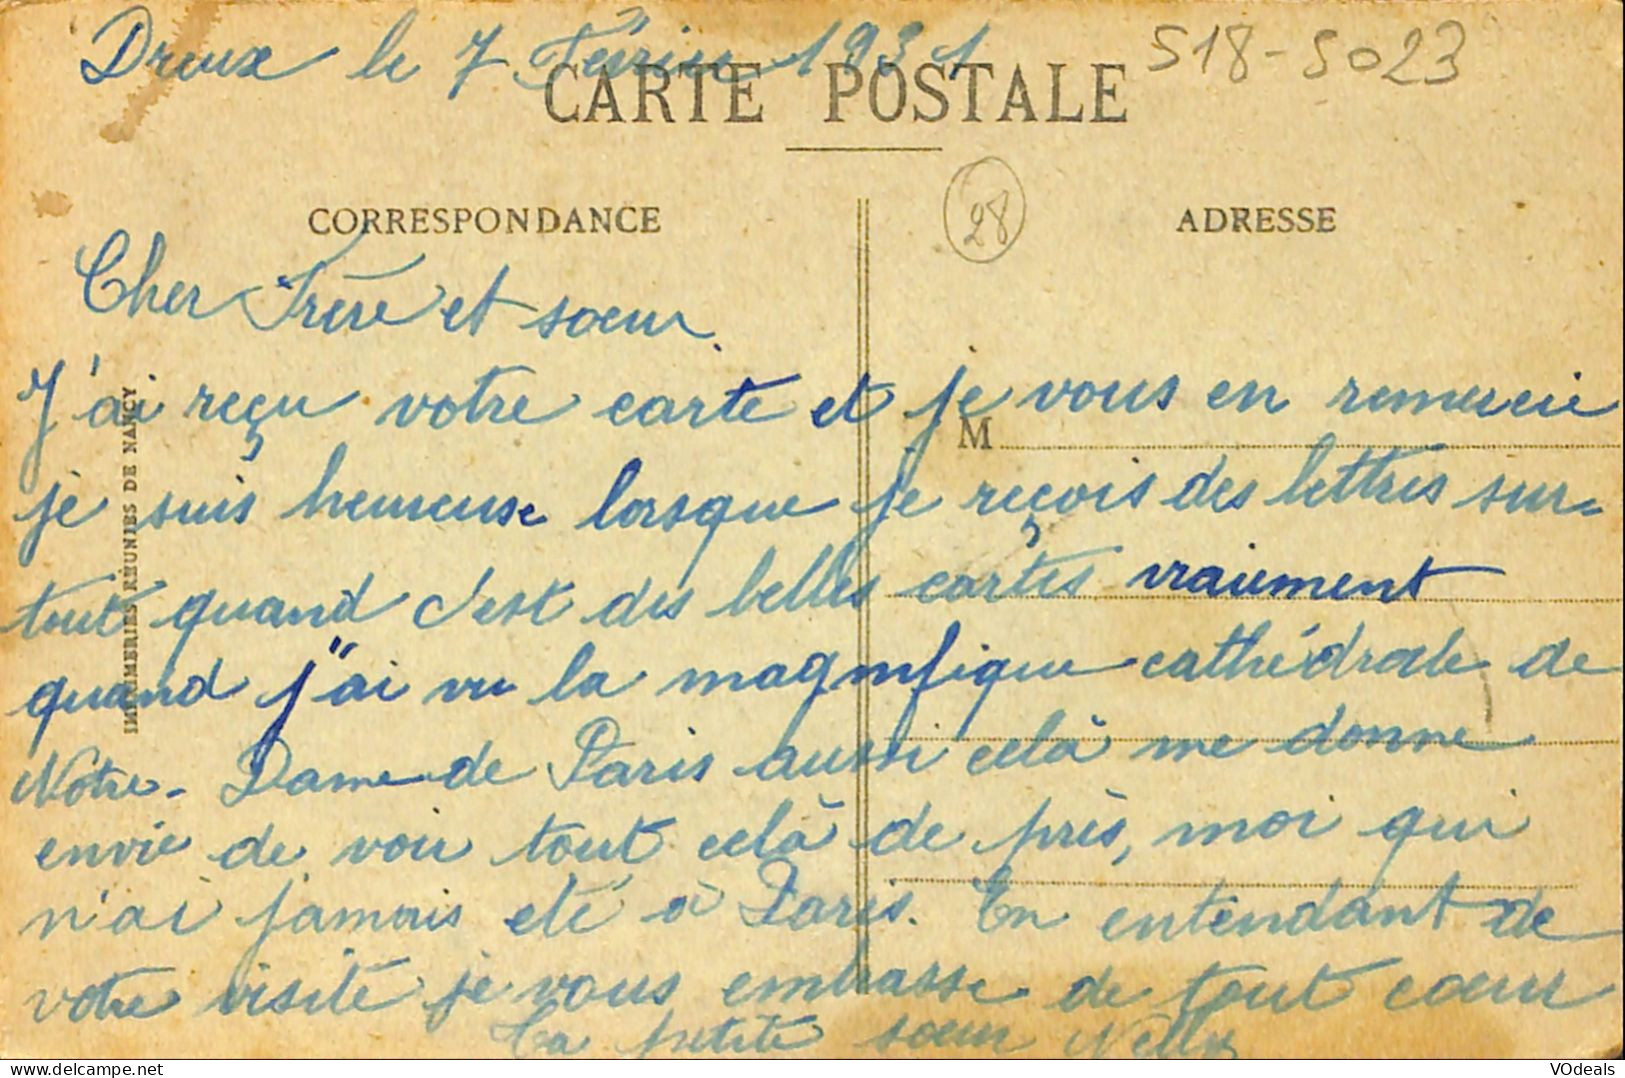 Dreux le 7 Février 1931
518-5023
CARTE POSTALE
28
CORRESPONDANCE
ADRESSE
Cher Frère et sœur.
J'ai reçu votre carte et je vous en remercie
M
je suis heureuse lorsque je reçois des lettres sur-
tout quand c'est des belles cartes vraiment
quand j'ai vu la magnifique cathédrale de
Notre-Dame de Paris aussi celà me donne
envie de voir tout celà de près, moi qui
n'ai jamais été à Paris. En entendant de
votre visite je vous embrasse de tout cœur
Ta petite sœur Nelly
IMPRIMERIES REUNIES DE NANCY
delcampe.net
VOdeals